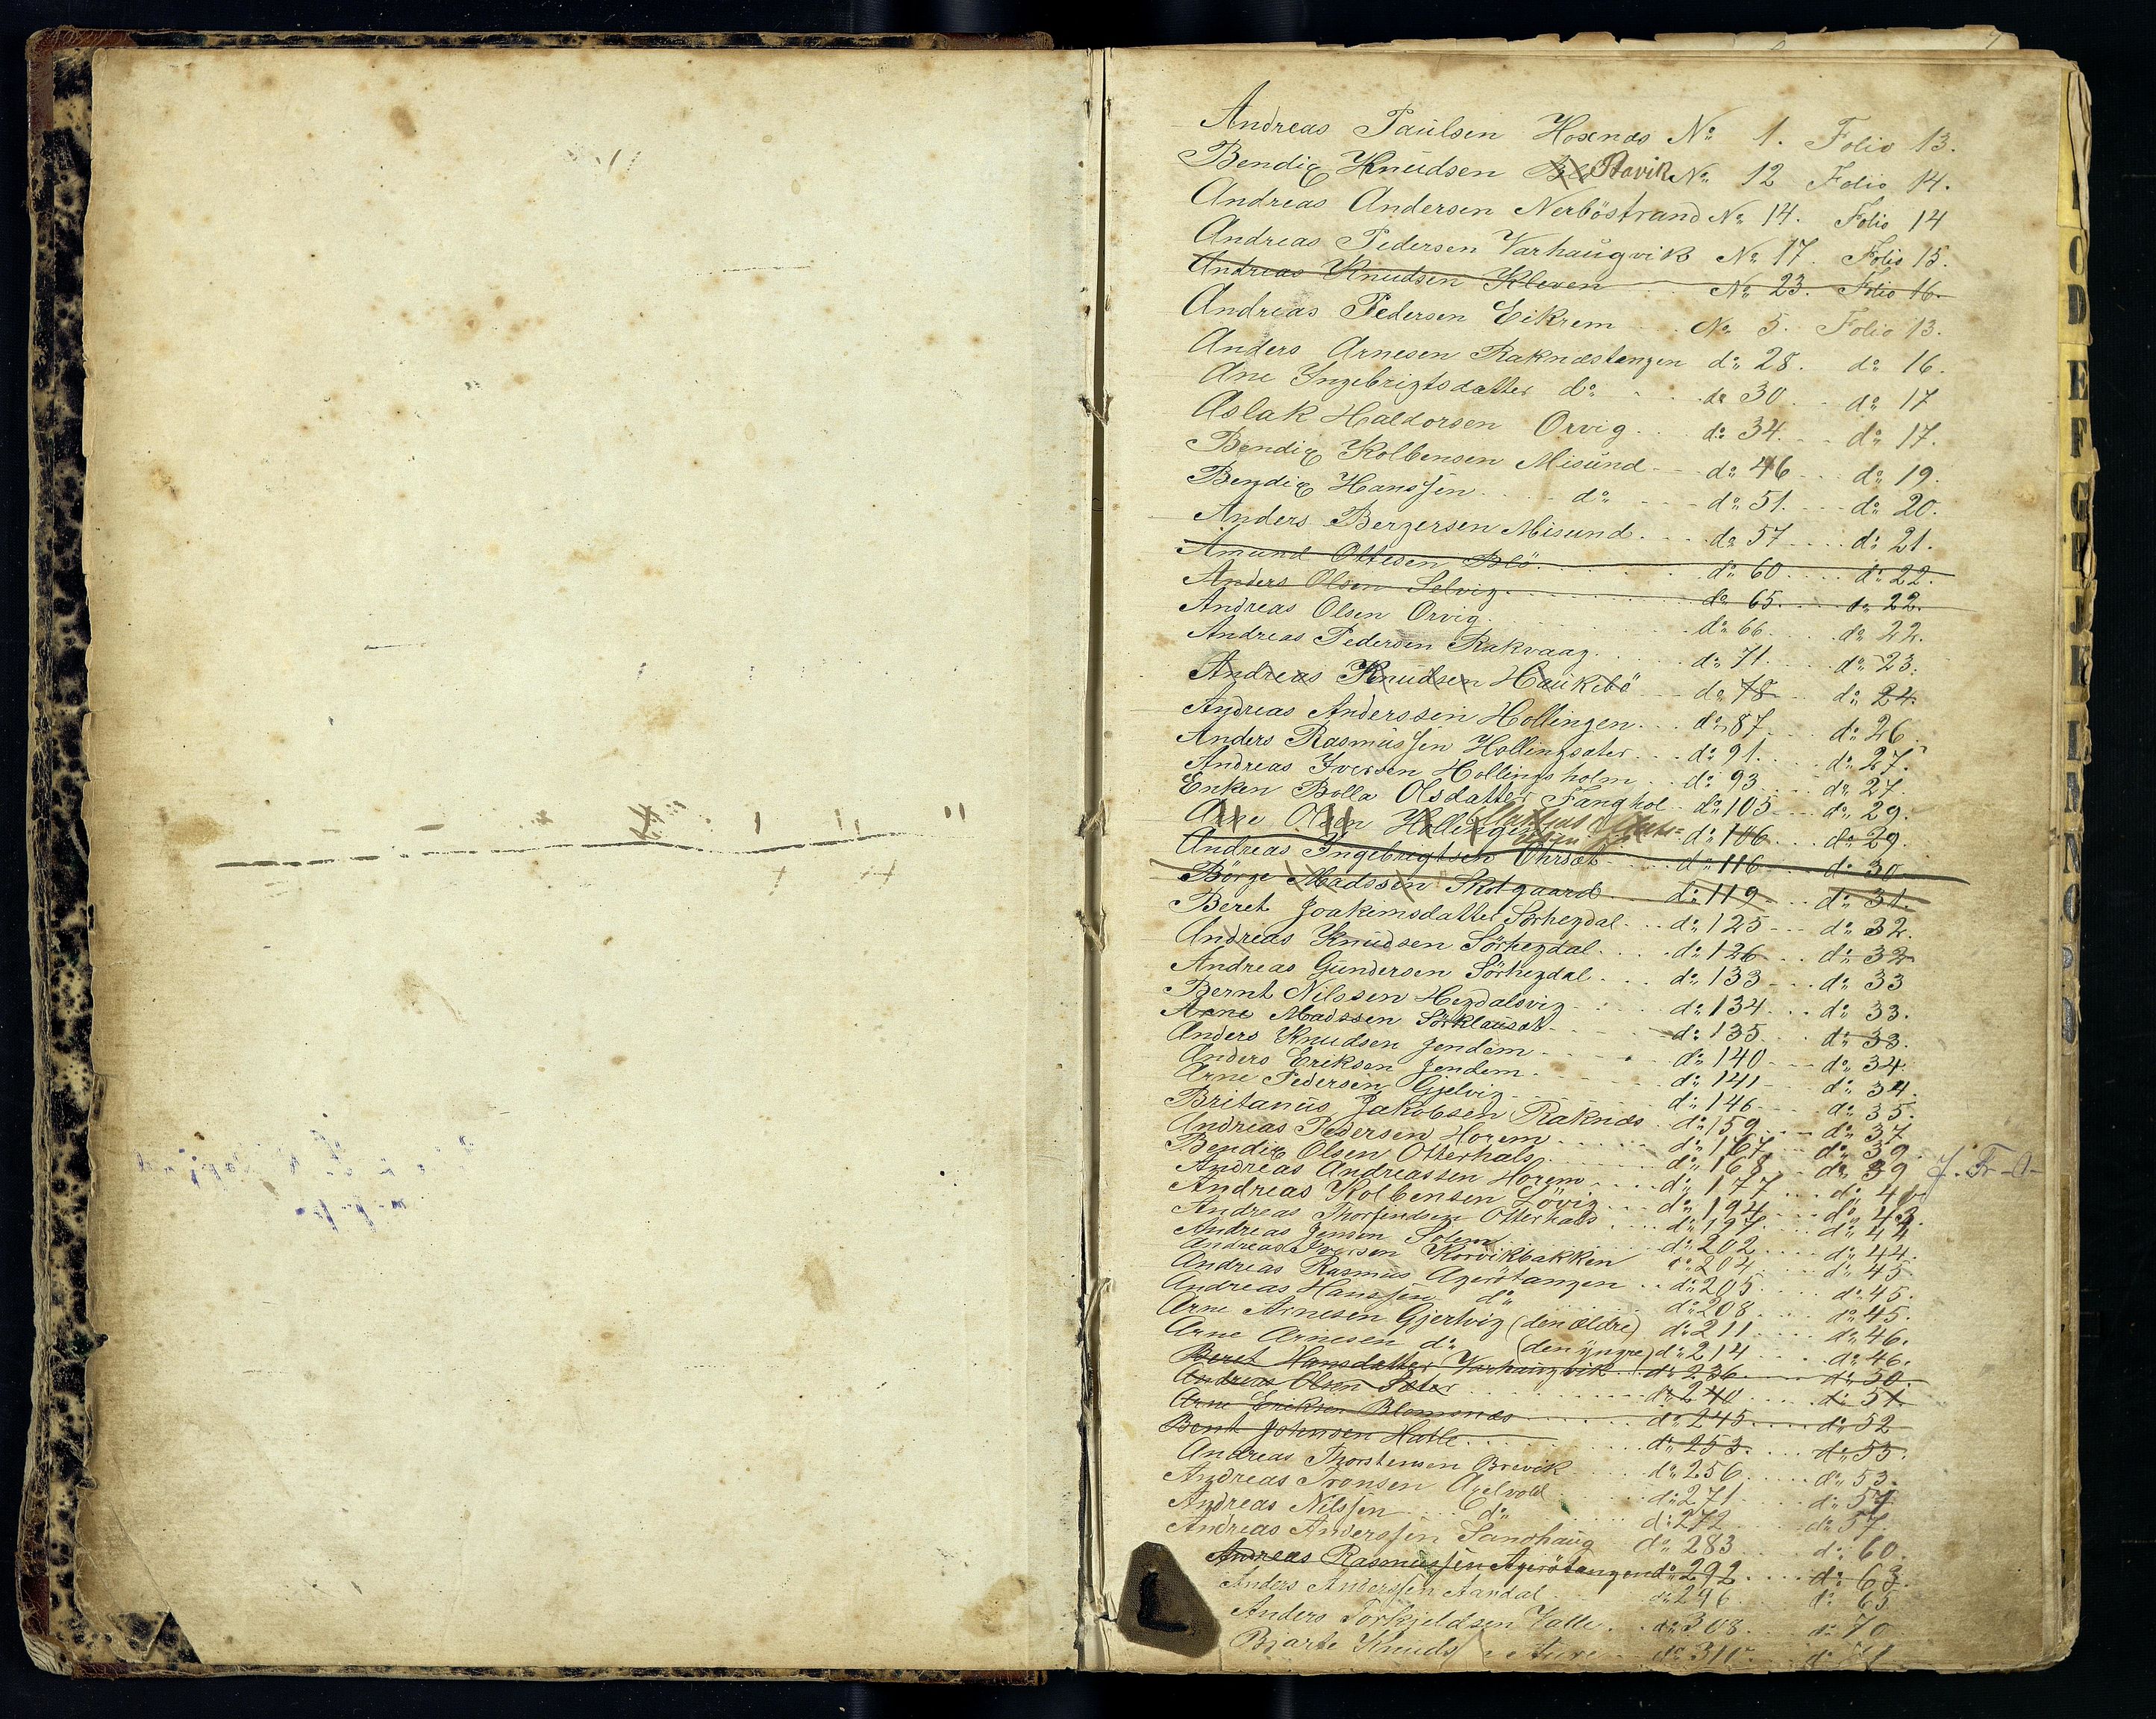 Andreas Paulsen Hoxnæs No 1. Folio 13.
Bendix Knudsen Stavik No 12 Folio 14.
Andreas Andersen Nerböstrand No 14. Folio 14
Andreas Pedersen Varhaugvik No 17. Folio 15.
Andreas Knudsen Kleven No 23. Folio 16.
Andreas Pedersen Eikrem No 5. Folio 13.
Anders Arnesen Raknæstangen do 28. do 16.
Ane Ingebrigtsdatter do do 30 do 17
Aslak Haldorsen Orvig do 34 do 17.
Bendix Kolbensen Misund do 46 do 19.
Bendix Hanssen do do 51. do 20.
Anders Bergersen Misund do 57 do 21.
Amund Ottesen Blö do 60 do 22.
Anders Olsen Selvig do 65. do 22.
Andreas Olsen Orvig do 66 do 22.
Andreas Pedersen Rakvaag do 71. do 23.
Andreas Knudsen Haukebö do 78 do 24.
Andreas Anderssen Hollingen do 87. do 26.
Anders Rasmussen Hollingsæter do 91. do 27.
Andreas Iversen Hollingsholm do 93 do 27.
Enken Bolla Olsdatter Fanghol do 105 do 29.
Arne Olsen Hollingen do 106 do 29.
Andreas Ingebrigtsen Ohrsæt do 116 do 30
Börge Madssen Skotgaard do 119 do 31.
Beret Joakimsdatter Sörhegdal do 125 do 32.
Andreas Knudsen Sörhegdal do 126 do 32
Andreas Gundersen Sörhegdal do 133 do 33
Bernt Nilssen Hegdalsvig do 134 do 33.
Arne Madssen Sörklauset do 135 do 33.
Anders Knudsen Jendem do 140 do 34.
Anders Eriksen Jendem do 141 do 34.
Arne Pedersen Gjelvig do 146 do 35.
Britanus Jakobsen Raknæs do 159 do 37
Andreas Pedersen Horem do 167 do 39.
Bendix Olsen Otterhals do 168 do 39 J. Fr-
Andreas Andreassen Horem do 177 do 40
Andreas Kolbensen Lövig do 194 do 43.
Andreas Thorfindsen Otterhals do 197 do 44
Andreas Jensen Solem do 202 do 44.
Andreas Iversen Korvikbakken do 204 do 45
Andreas Rasmus Agerötangen do 205 do 45.
Andreas Hanssen do do 208 do 45.
Arne Arnesen Gjertvig (den ældre) do 211 do 46.
Arne Arnesen do (den yngre) do 214 do 46.
Beret Hansdatter Varhaugvik do 236 do 50.
Andreas Olsen Sæter do 240 do 51.
Arne Eriksen Blomsnæs do 245 do 52
Bent Johnsen Hatle do 253 do 53.
Andreas Thorstensen Brevik do 256 do 53.
Andreas Tronsen Agelvold do 271 do 57
Andreas Nilssen do do 272 do 57
Andreas Anderssen Sandhaug do 283 do 60.
Andreas Rasmussen Agerötangen do 292 do 63.
Anders Anderssen Aandal do 296 do 65
Anders Torkjeldsen Valle do 308 do 70
Bjarte Knuds Aure do 311 do 71
D
E
F
G
L
N
O